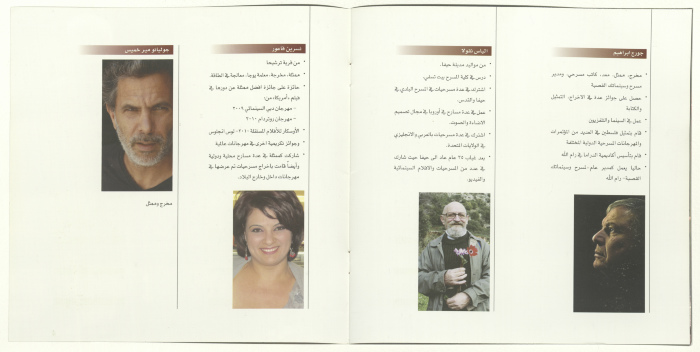 جورج ابراهيم
• مخرج، ممثل، معد، كاتب مسرحي، ومدير
مسرح وسينماتك القصبة
• حصل على جوائز عدة في الاخراج، التمثيل
والكتابة
• عمل في السينما والتلفزيون
• قام بتمثيل فلسطين في العديد من المؤتمرات
والمهرجانات المسرحية الدولية المختلفة
• قام بتأسيس أكاديمية الدراما في رام الله
• حاليا يعمل كمدير عام لمسرح وسينماتك
القصبة - رام الله
الياس نقولا
• من مواليد مدينة حيفا.
• درس في كلية المسرح بيت تسفي.
• اشترك في عدة مسرحيات في المسرح البلدي في
حيفا والقدس.
• عمل في عدة مسارح في أوروبا في مجال تصميم
الاضاءة والصوت.
• اشترك في عدة مسرحيات بالعربي والانجليزي
في الولايات المتحدة.
• بعد غياب ٢٥ عام عاد الى حيفا حيث شارك
في عدد من المسرحيات والافلام السينمائية
والفيديو.
نسرين فاعور
• من قرية ترشيحا
• ممثلة، مخرجة، معلمة يوجا، معالجة في الطاقة.
• حائزة على جائزة افضل ممثلة عن دورها في
فيلم «أمريكا» من:
- مهرجان دبي السينمائي ٢٠٠٩
- مهرجان روتردام ٢٠١٠
الأوسكار للأفلام المستقلة ٢٠١٠- لوس انجلوس
وجوائز تكريمية اخرى في مهرجانات عالمية
• شاركت كممثلة في عدة مسارح محلية ودولية
وأيضاً قامت باخراج مسرحيات تم عرضها في
مهرجانات داخل وخارج البلاد.
جوليانو مير خميس
مخرج وممثل